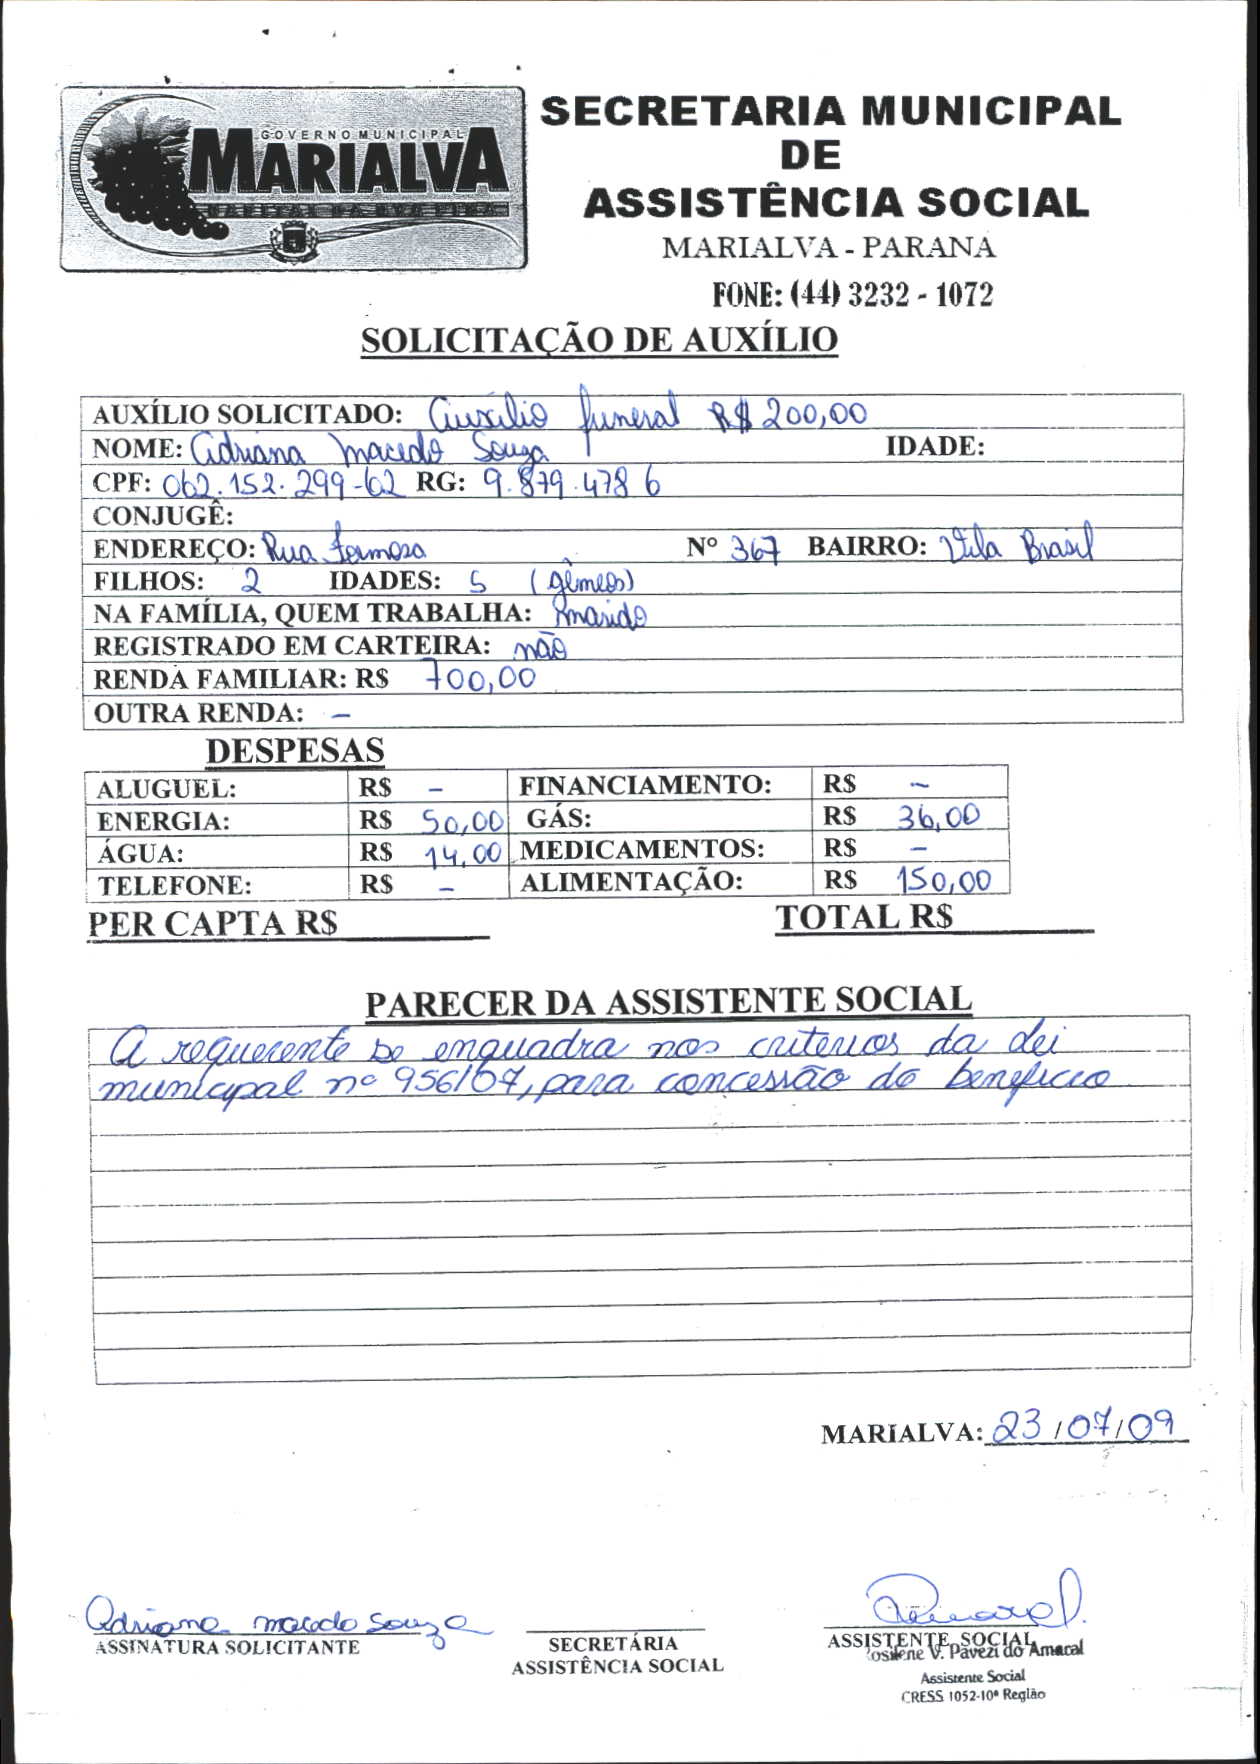 GOVERNO MUNICIPAL
MARIALVA
SECRETARIA MUNICIPAL
DE
ASSISTÊNCIA SOCIAL
MARIALVA - PARANA
FONE: (44) 3232 - 1072
SOLICITAÇÃO DE AUXÍLIO
AUXÍLIO SOLICITADO: Auxílio funeral R$ 200,00
NOME: Adriana Macedo Souza IDADE:
CPF: 062.152.299-62 RG: 9.879.478 6
CONJUGÊ:
ENDEREÇO: Rua Formosa Nº 367 BAIRRO: Vila Brasil
FILHOS: 2 IDADES: 5 (gêmeos)
NA FAMÍLIA, QUEM TRABALHA: marido
REGISTRADO EM CARTEIRA: não
RENDA FAMILIAR: R$ 700,00
OUTRA RENDA: -
DESPESAS
ALUGUEL: R$ - FINANCIAMENTO: R$ -
ENERGIA: R$ 50,00 GÁS: R$ 36,00
ÁGUA: R$ 14,00 MEDICAMENTOS: R$ -
TELEFONE: R$ - ALIMENTAÇÃO: R$ 150,00
PER CAPTA R$ TOTAL R$
PARECER DA ASSISTENTE SOCIAL
A requerente se enquadra nos criterios da Lei
municipal nº 956/07, para concessão do beneficio
MARIALVA: 23/07/09
Adriana macedo souza
ASSINATURA SOLICITANTE
SECRETÁRIA
ASSISTÊNCIA SOCIAL
ASSISTENTE SOCIAL
Josilene V. Pavezi do Amaral
Assistente Social
CRESS 1052-10ª Região